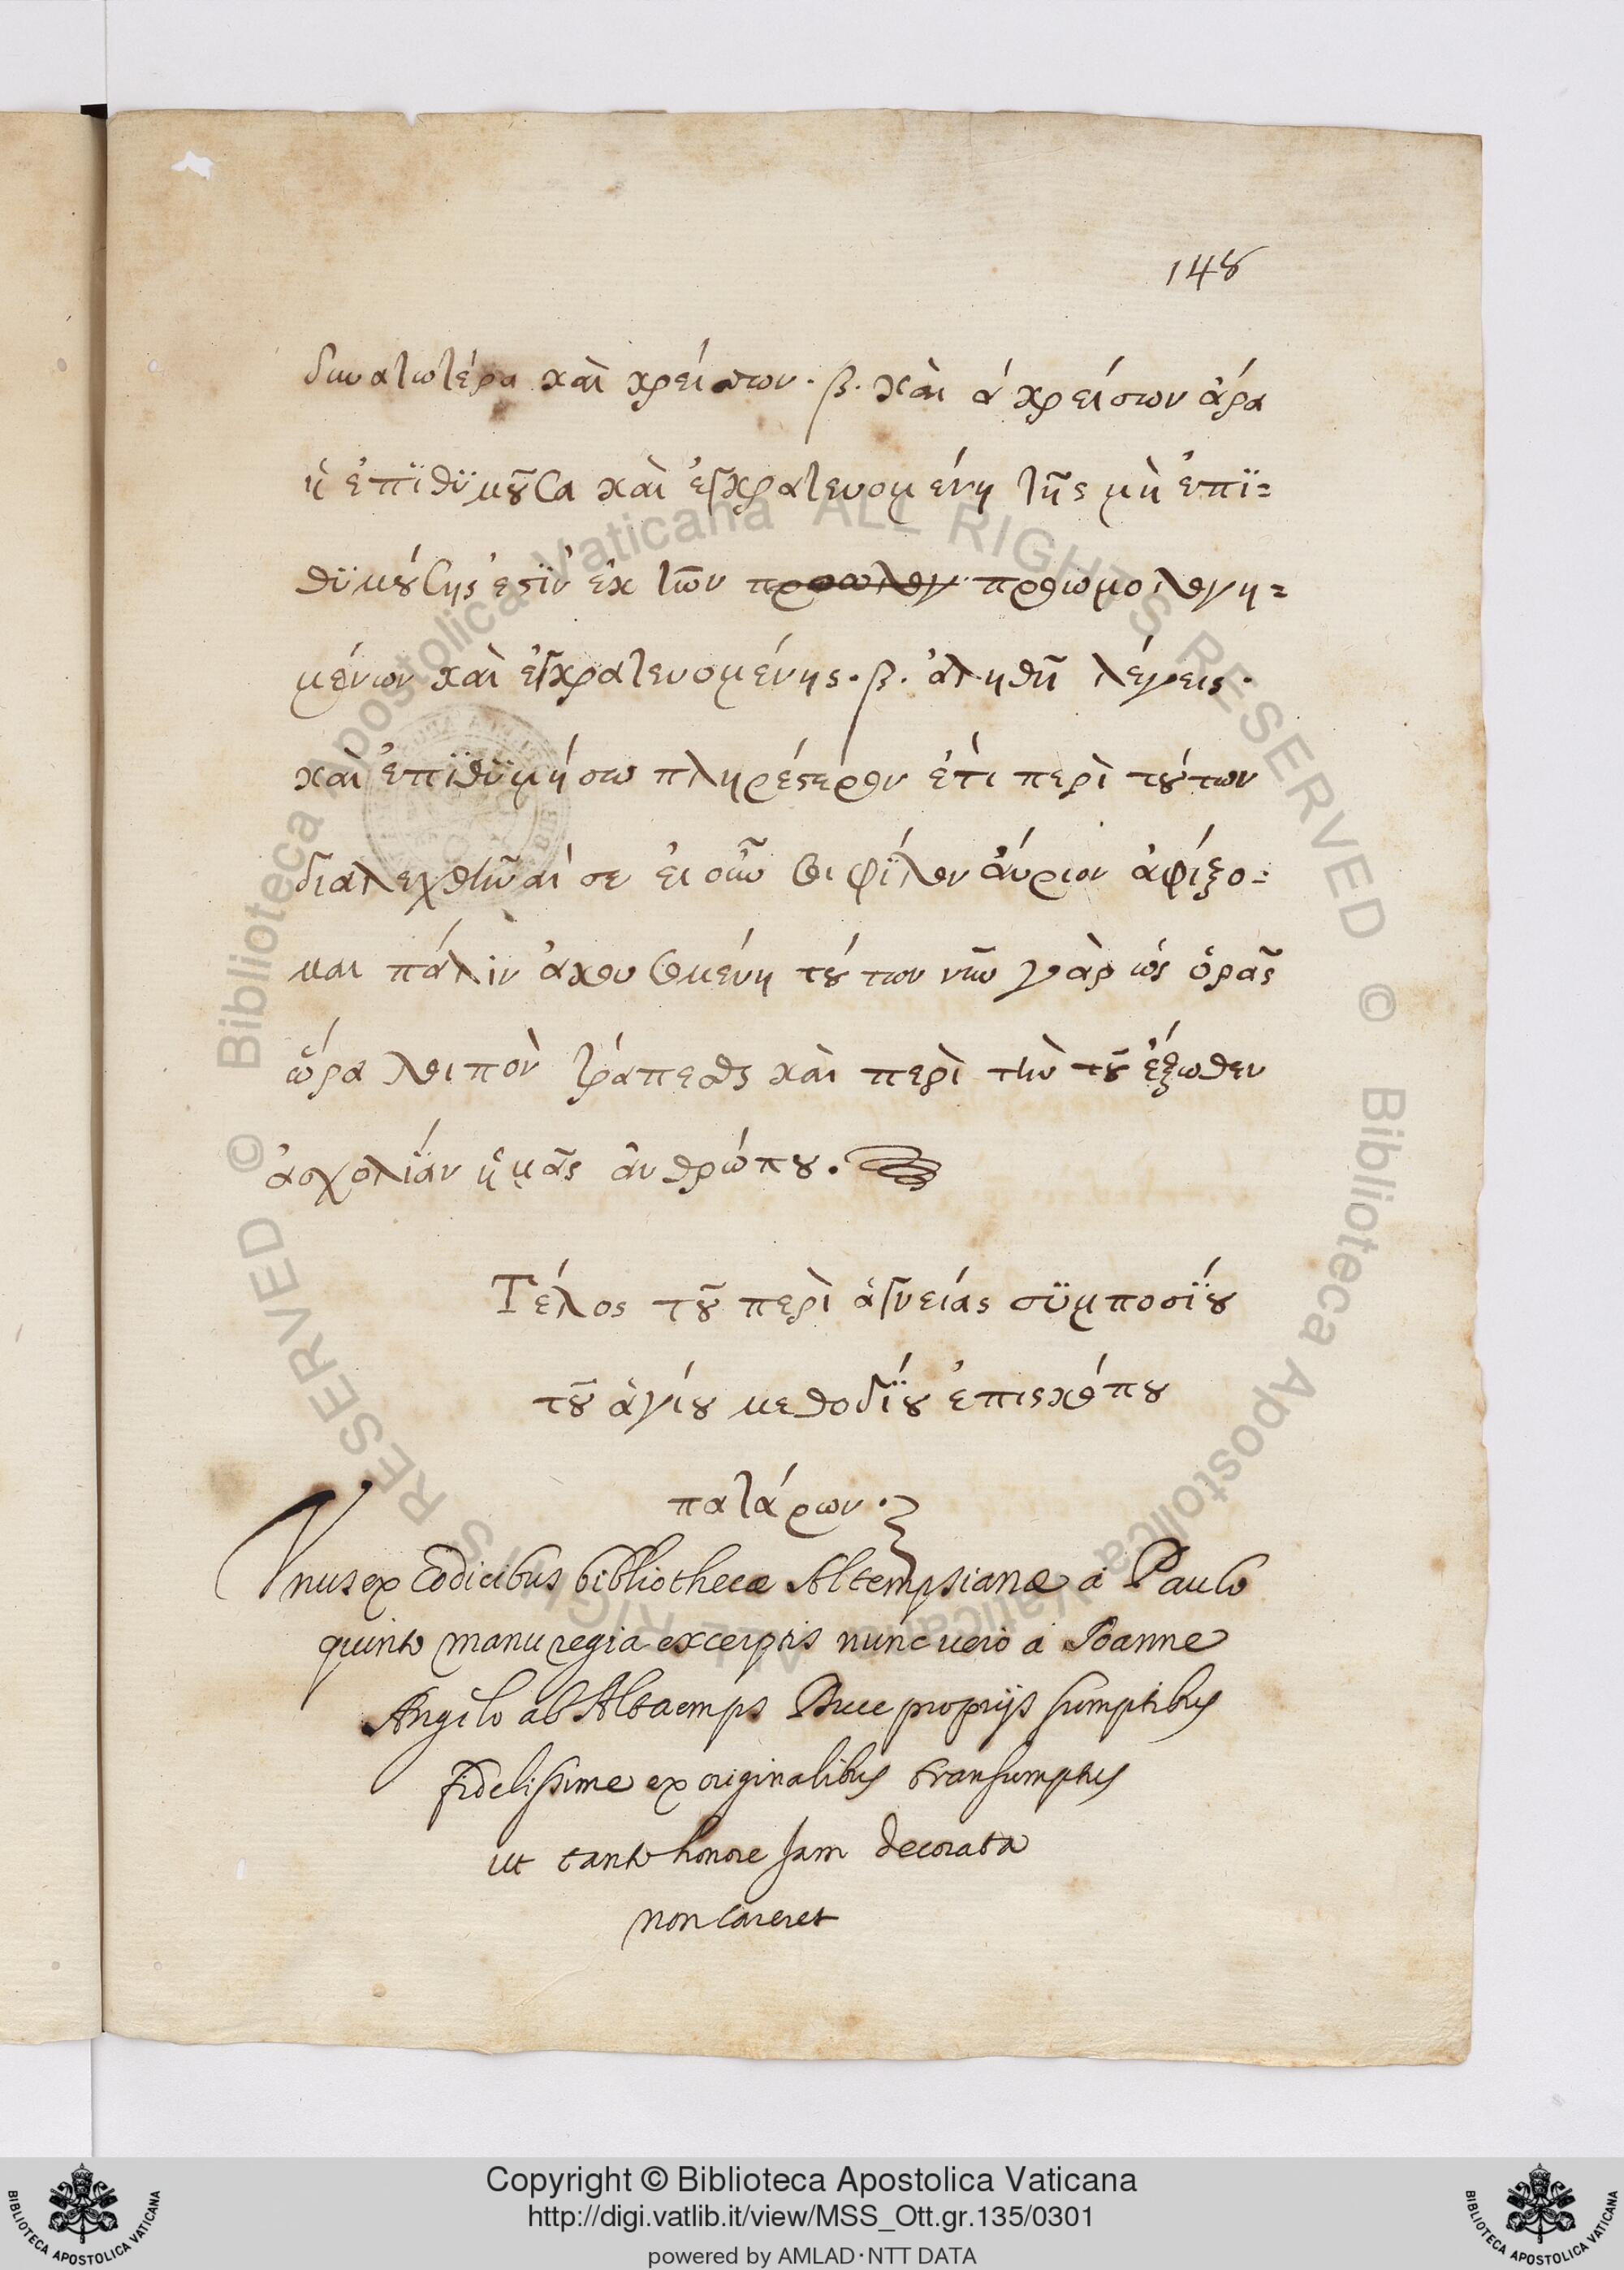 148
δυνατωτέρα καὶ κρείσσων. β. καὶ α κρείσσων ἄρα
ἡ ἐπϊθϋμοῦσα καὶ ἐγκρατευομένη τῆς μὴ ἐπϊ=
θϋμούσης ἐστϊν ἐκ τῶν προολογ προωμολογη=
μένων καὶ ἐγκρατευομένης. β. ἀληθῆ λέγεις.
καὶ ἐπϊθϋμήσω πληρέστερον ἔτι περὶ τούτων
διαλεχθῆναί σε εἰ οὖν σοι φίλον ἄυριον ἀφίξο=
μαι πάλιν ἀκουσομένη τούτων νῦν γὰρ ὡς ὁρᾶς
ὥρα λοιπὸν τράπεσθαι καὶ περὶ τὴν τοῦ ἔξωθεν
ἀσχολΐαν ἡμᾶς ἀνθρώπου.
Τέλος τοῦ περὶ ἁγνείας σϋμποσΐου
τοῦ ἁγίου μεθοδΐου ἐπισκόπου
πατάρων.
Vnus ex Codicibus bibliothecæ Altempsianæ a Paulo
quinto manu regia excerptis nunc uero a Ioanne
Angelo ab Altaemps Duce proprijs sumptibus
fidelissime ex originalibus transumptus
ut tanto honore Iam decorata
non careret
Copyright © Biblioteca Apostolica Vaticana
http://digi.vatlib.it/view/MSS_Ott.gr.135/0301
powered by AMLAD·NTT DATA
BIBLIOTECA APOSTOLICA VATICANA
BIBLIOTECA APOSTOLICA VATICANA
© Biblioteca Apostolica Vaticana ALL RIGHTS RESERVED © Biblioteca Apostolica Vaticana ALL RIGHTS RESERVED